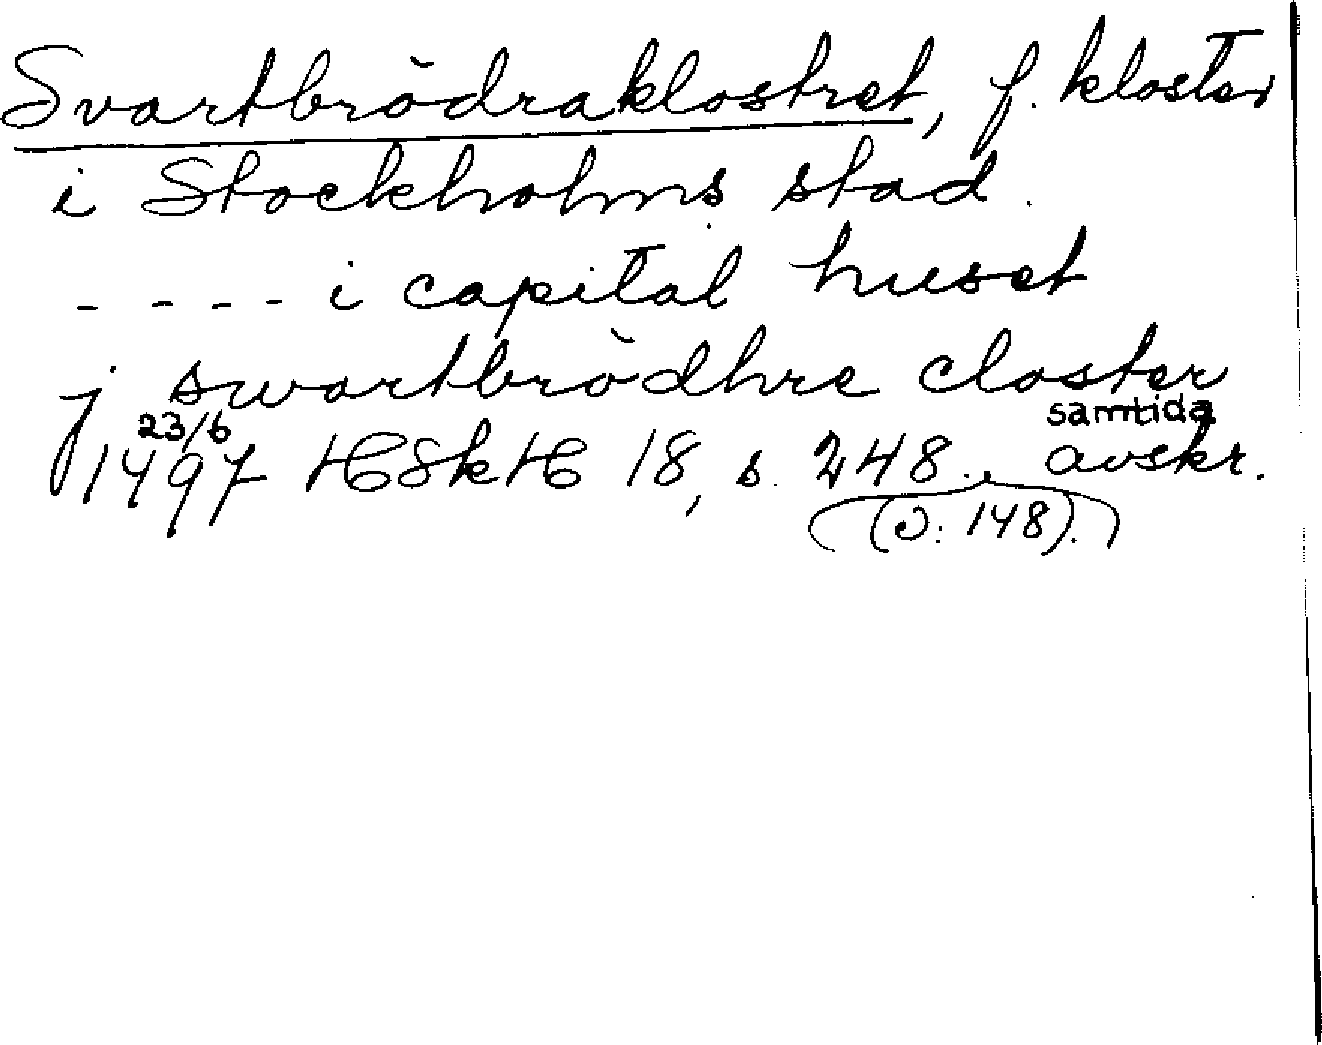 Svartbrödraklostret, f. kloster
i Stockholms stad.
- - - - i capital huset
j swartbrödhre closter
23/6 samtida
1497 HSkH 18, s. 248., avskr.
(ɔ: 148).